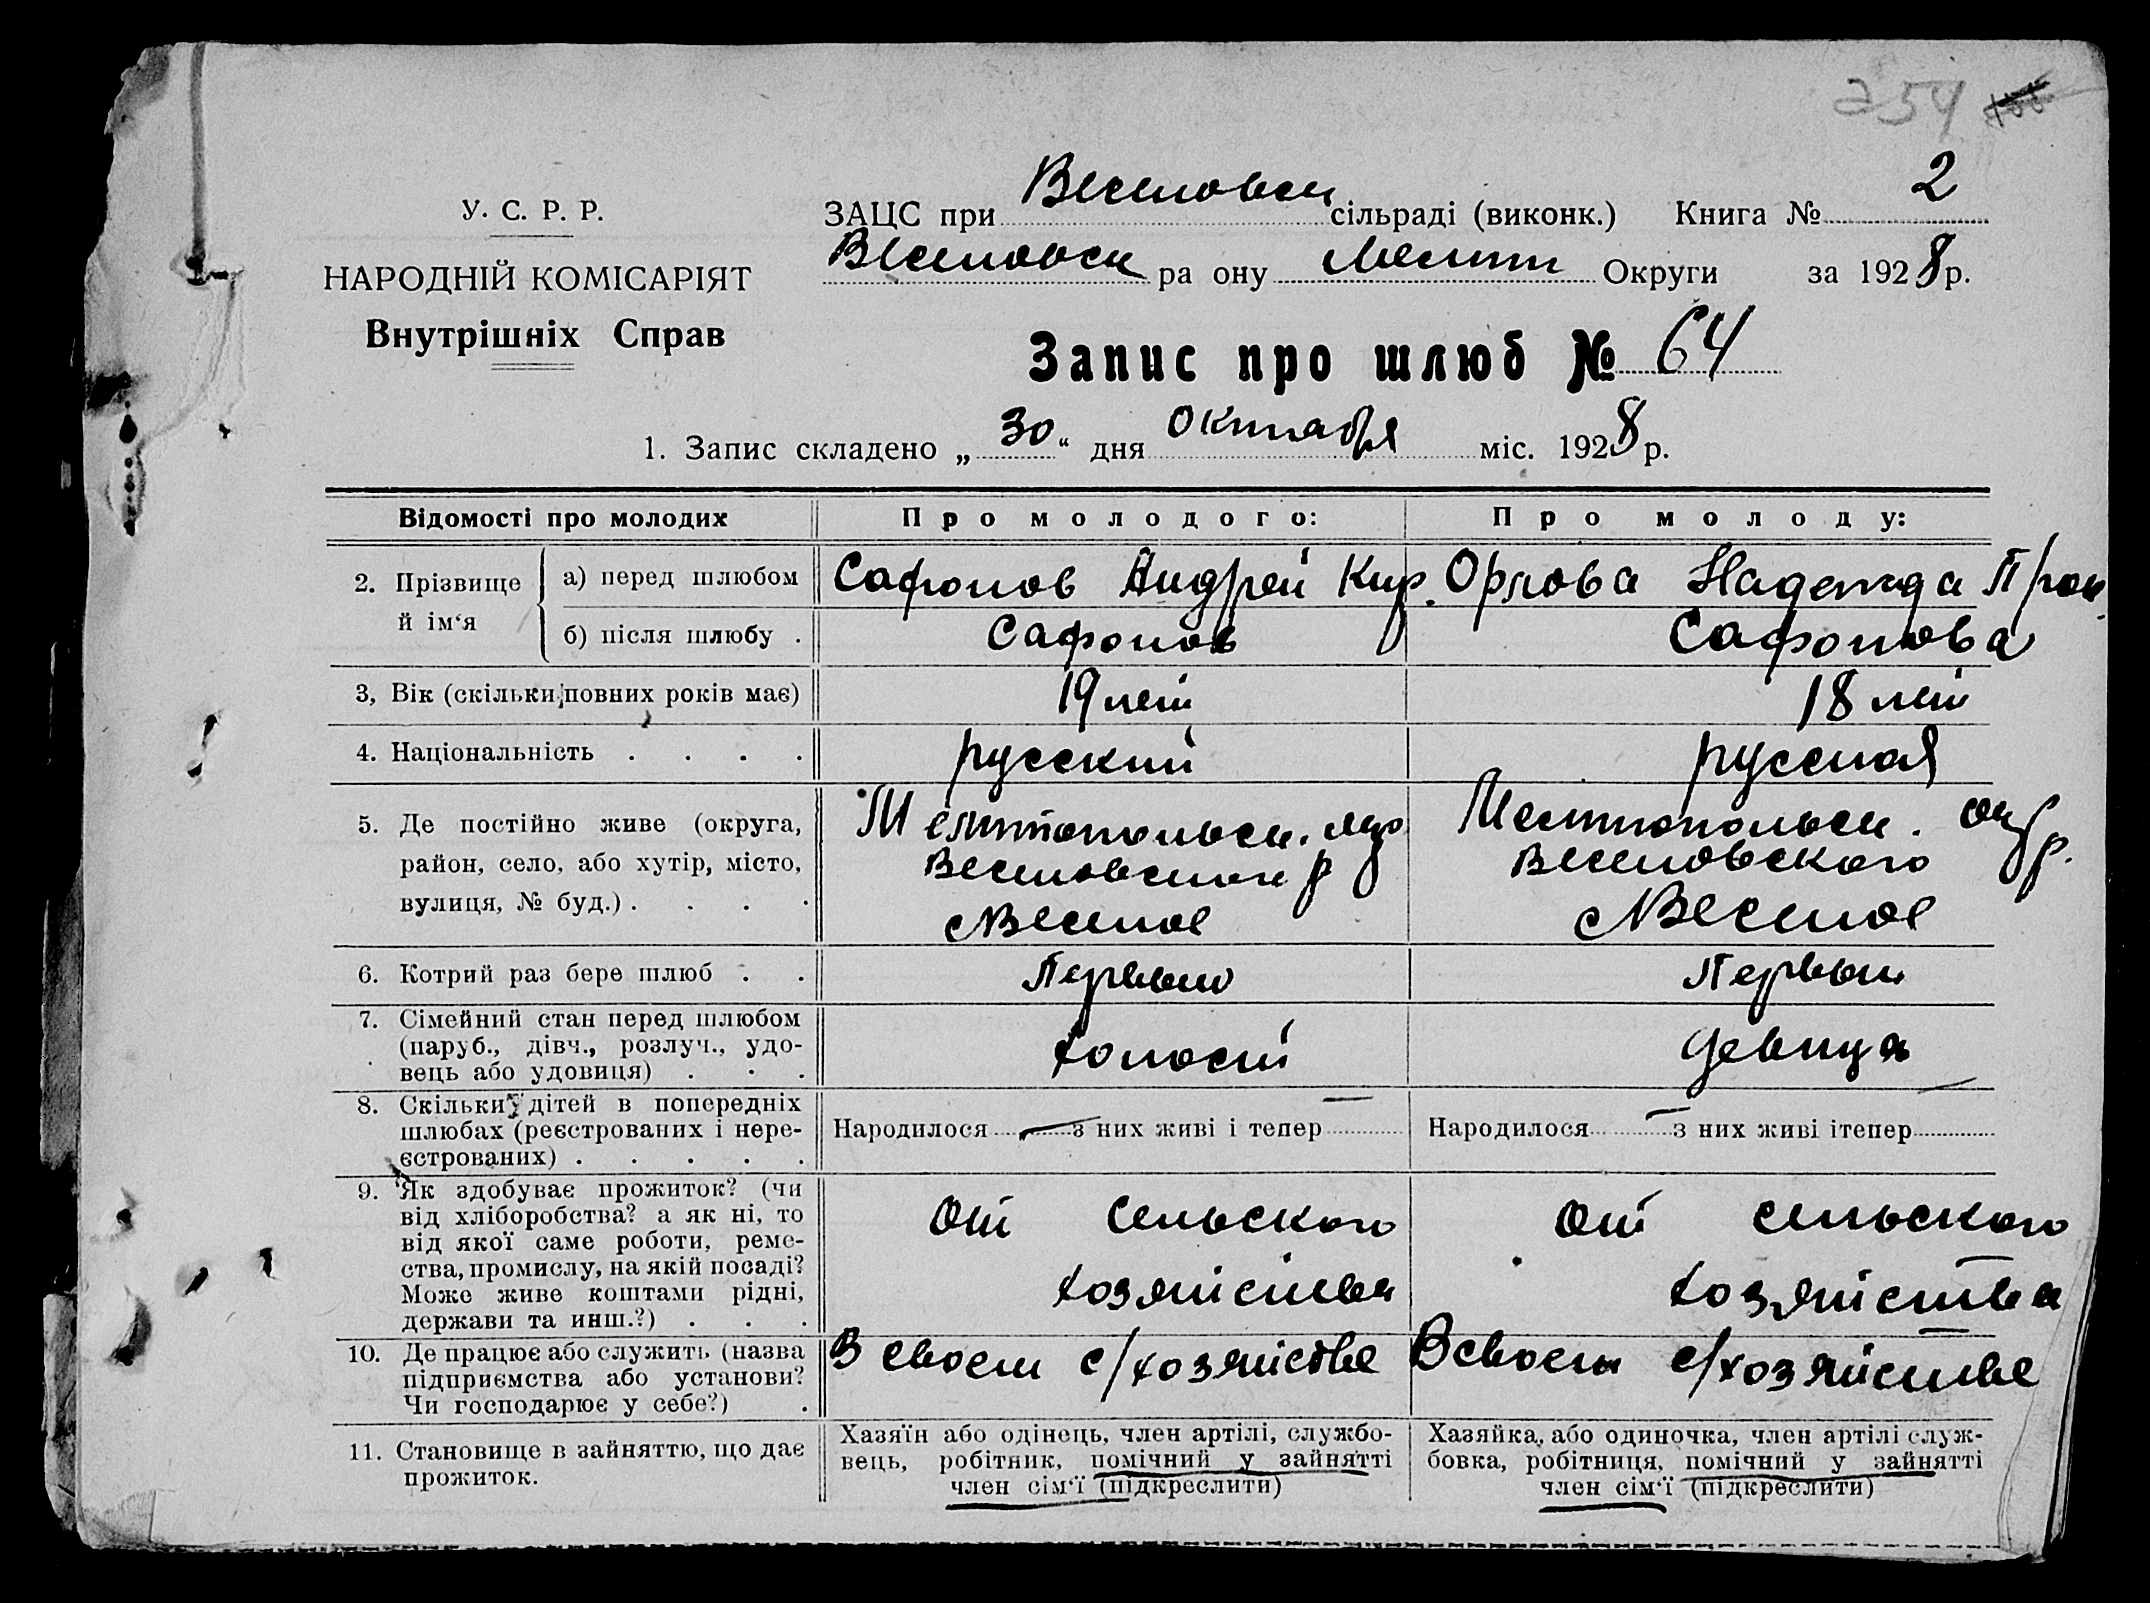 254
У. С. Р. Р.
НАРОДНІЙ КОМІСАРІЯТ
Внутрішніх Справ
ЗАЦС при Веселовск сільраді (виконк.) Книга № 2
Веселовск ра ону Мелит Округи за 1928 р.
Запис про шлюб № 64
1. Запис складено „30“ дня Октября міс. 1928 р.
Відомості про молодих Про молодого: Про молоду:
2. Прізвище й ім‘я
а) перед шлюбом Сафонов Андрей Кир. Орлова Надежда Прок.
б) після шлюбу . Сафонов Сафонова
3, Вік (скільки повних років має) 19 лет 18 лет
4. Національність . . . . русский русская
5. Де постійно живе (округа,
район, село, або хутір, місто,
вулиця, № буд.) . . . .
Мелитопольск. окр
Веселовского р
с Веселое
Мелитопольск. окр
Веселовского р.
с Веселое
6. Котрий раз бере шлюб . . Первый Первый
7. Сімейний стан перед шлюбом
(паруб., дівч., розлуч., удо-
вець або удовиця) . . .
холост девица
8. Скільки дітей в попередніх
шлюбах (реєстрованих і нере-
єстрованих) . . . . .
Народилося — з них живі і тепер —
Народилося — з них живі ітепер —
9. Як здобуває прожиток? (чи
від хліборобства? а як ні, то
від якої саме роботи, реме-
ства, промислу, на якій посаді?
Може живе коштами рідні,
держави та инш.?) . . .
От Сельского
хозяйства
От сельского
хозяйства
10. Де працює або служить (назва
підприємства або установи?
Чи господарює у себе?) .
В своем с/хозяйстве В своем с/хозяйстве
11. Становище в зайняттю, що дає
прожиток.
Хазяїн або одінець, член артілі, службо-
вець, робітник, помічний у зайнятті
член сім‘ї (підкреслити)
Хазяйка, або одиночка, член артілі служ-
бовка, робітниця, помічний у зайнятті
член сім‘ї (підкреслити)